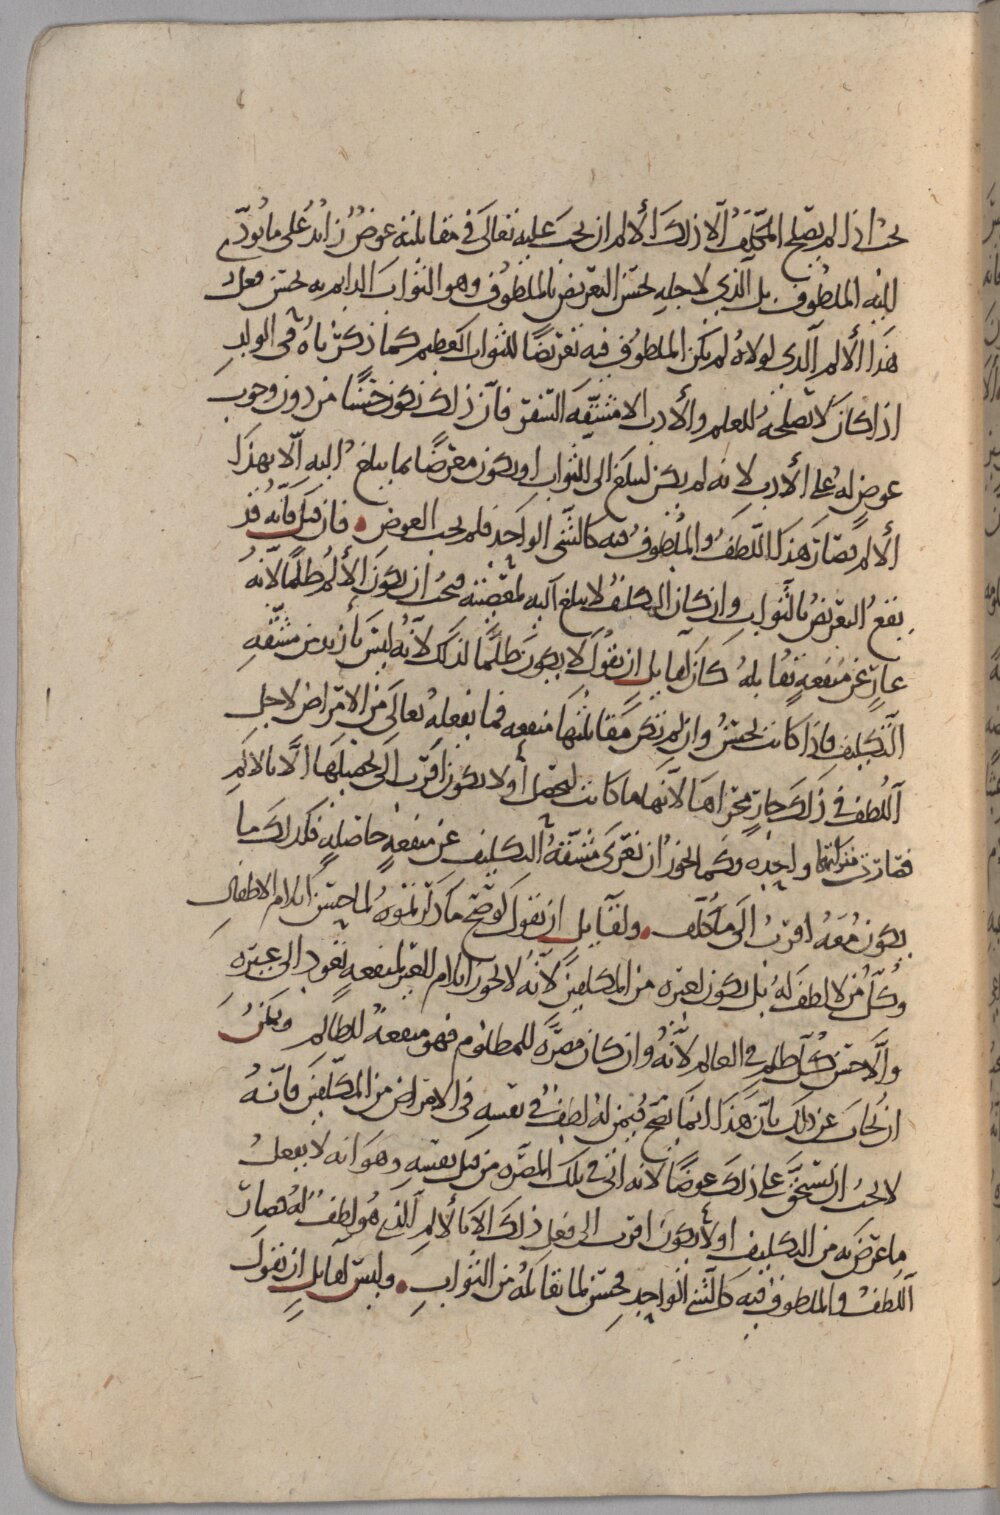 يجب اذا لم يصلح المكلف الا ذلك الألم ان يجب عليه تعالى في مقابلته عوض زائد على ما يودي
اليه الملطوف بل الذي لاجله يحسن التعريض بالملطوف وهو الثواب الدايم به يحسن فعل
هذا الألم الذي لولاه لم يكن الملطوف فيه تعريضا للثواب العظيم كما ذكرناه في الوالد
اذا كان لا يصلحه للعلم والأدب الا مشقة السفر فان ذلك يكون حسنا من دون وجوب
عوض له على الأدب لانه لم يكن ليبلغ الى الثواب او يكون معرضا بما يبلغ اليه الا بهذا
الألم فصار هذا اللطف والملطوف فيه كالشي الواحد فلم يجب العوض • فان قيل فانه قد
يقع التعريض بالثواب وان كان المكلف لا يبلغ اليه لمعصيته فيجب ان يكون الألم ظلما لأنه
عار عن منفعة تقابله كان لقايل ان يقول لا يكون ظلما لذلك لأنه ليس بأزيد من مشقة
التكليف فاذا كانت تحسن وان لم يكن مقابلتها منفعه فما يفعله تعالى من الامراض لاجل
اللطف في ذلك جار مجراها لأنها ما كانت لتحصل أولا يكون اقرب الى تحصيلها الا بالألم
فصارت بمنزلة واحده وكما يجوز ان تعرى مشقة التكليف عن منفعة حاصلة فكذلك ما
يكون معه اقرب الى ما كلف • ولقايل ان يقول لو صح ما ذكرتموه لما حسن ايلام الاطفال
وكل من لا لطف له بل يكون لغيره من المكلفين لأنه لا يجوز ايلام الغير لمنفعة تعود الى غيره
والا حسن كل ظلم في العالم لأنه وان كان مضرة للمظلوم فهو منفعة للظالم ويمكن
ان يجاب عن ذلك بأن هذا انما يصح فيمن له لطف في نفسه في الامراض من المكلفين فانه
لا يجب ان يستحق على ذلك عوضا لانه اتى في تلك المضره من قبل نفسه وهو انه لا يفعل
ما عرض به من التكليف اولا يكون اقرب الى فعل ذلك الا بالألم الذي هو لطف له فصار
اللطف والملطوف فيه كالشي الواحد فحسن لما يقابله من الثواب • وليس لقايل ان يقول